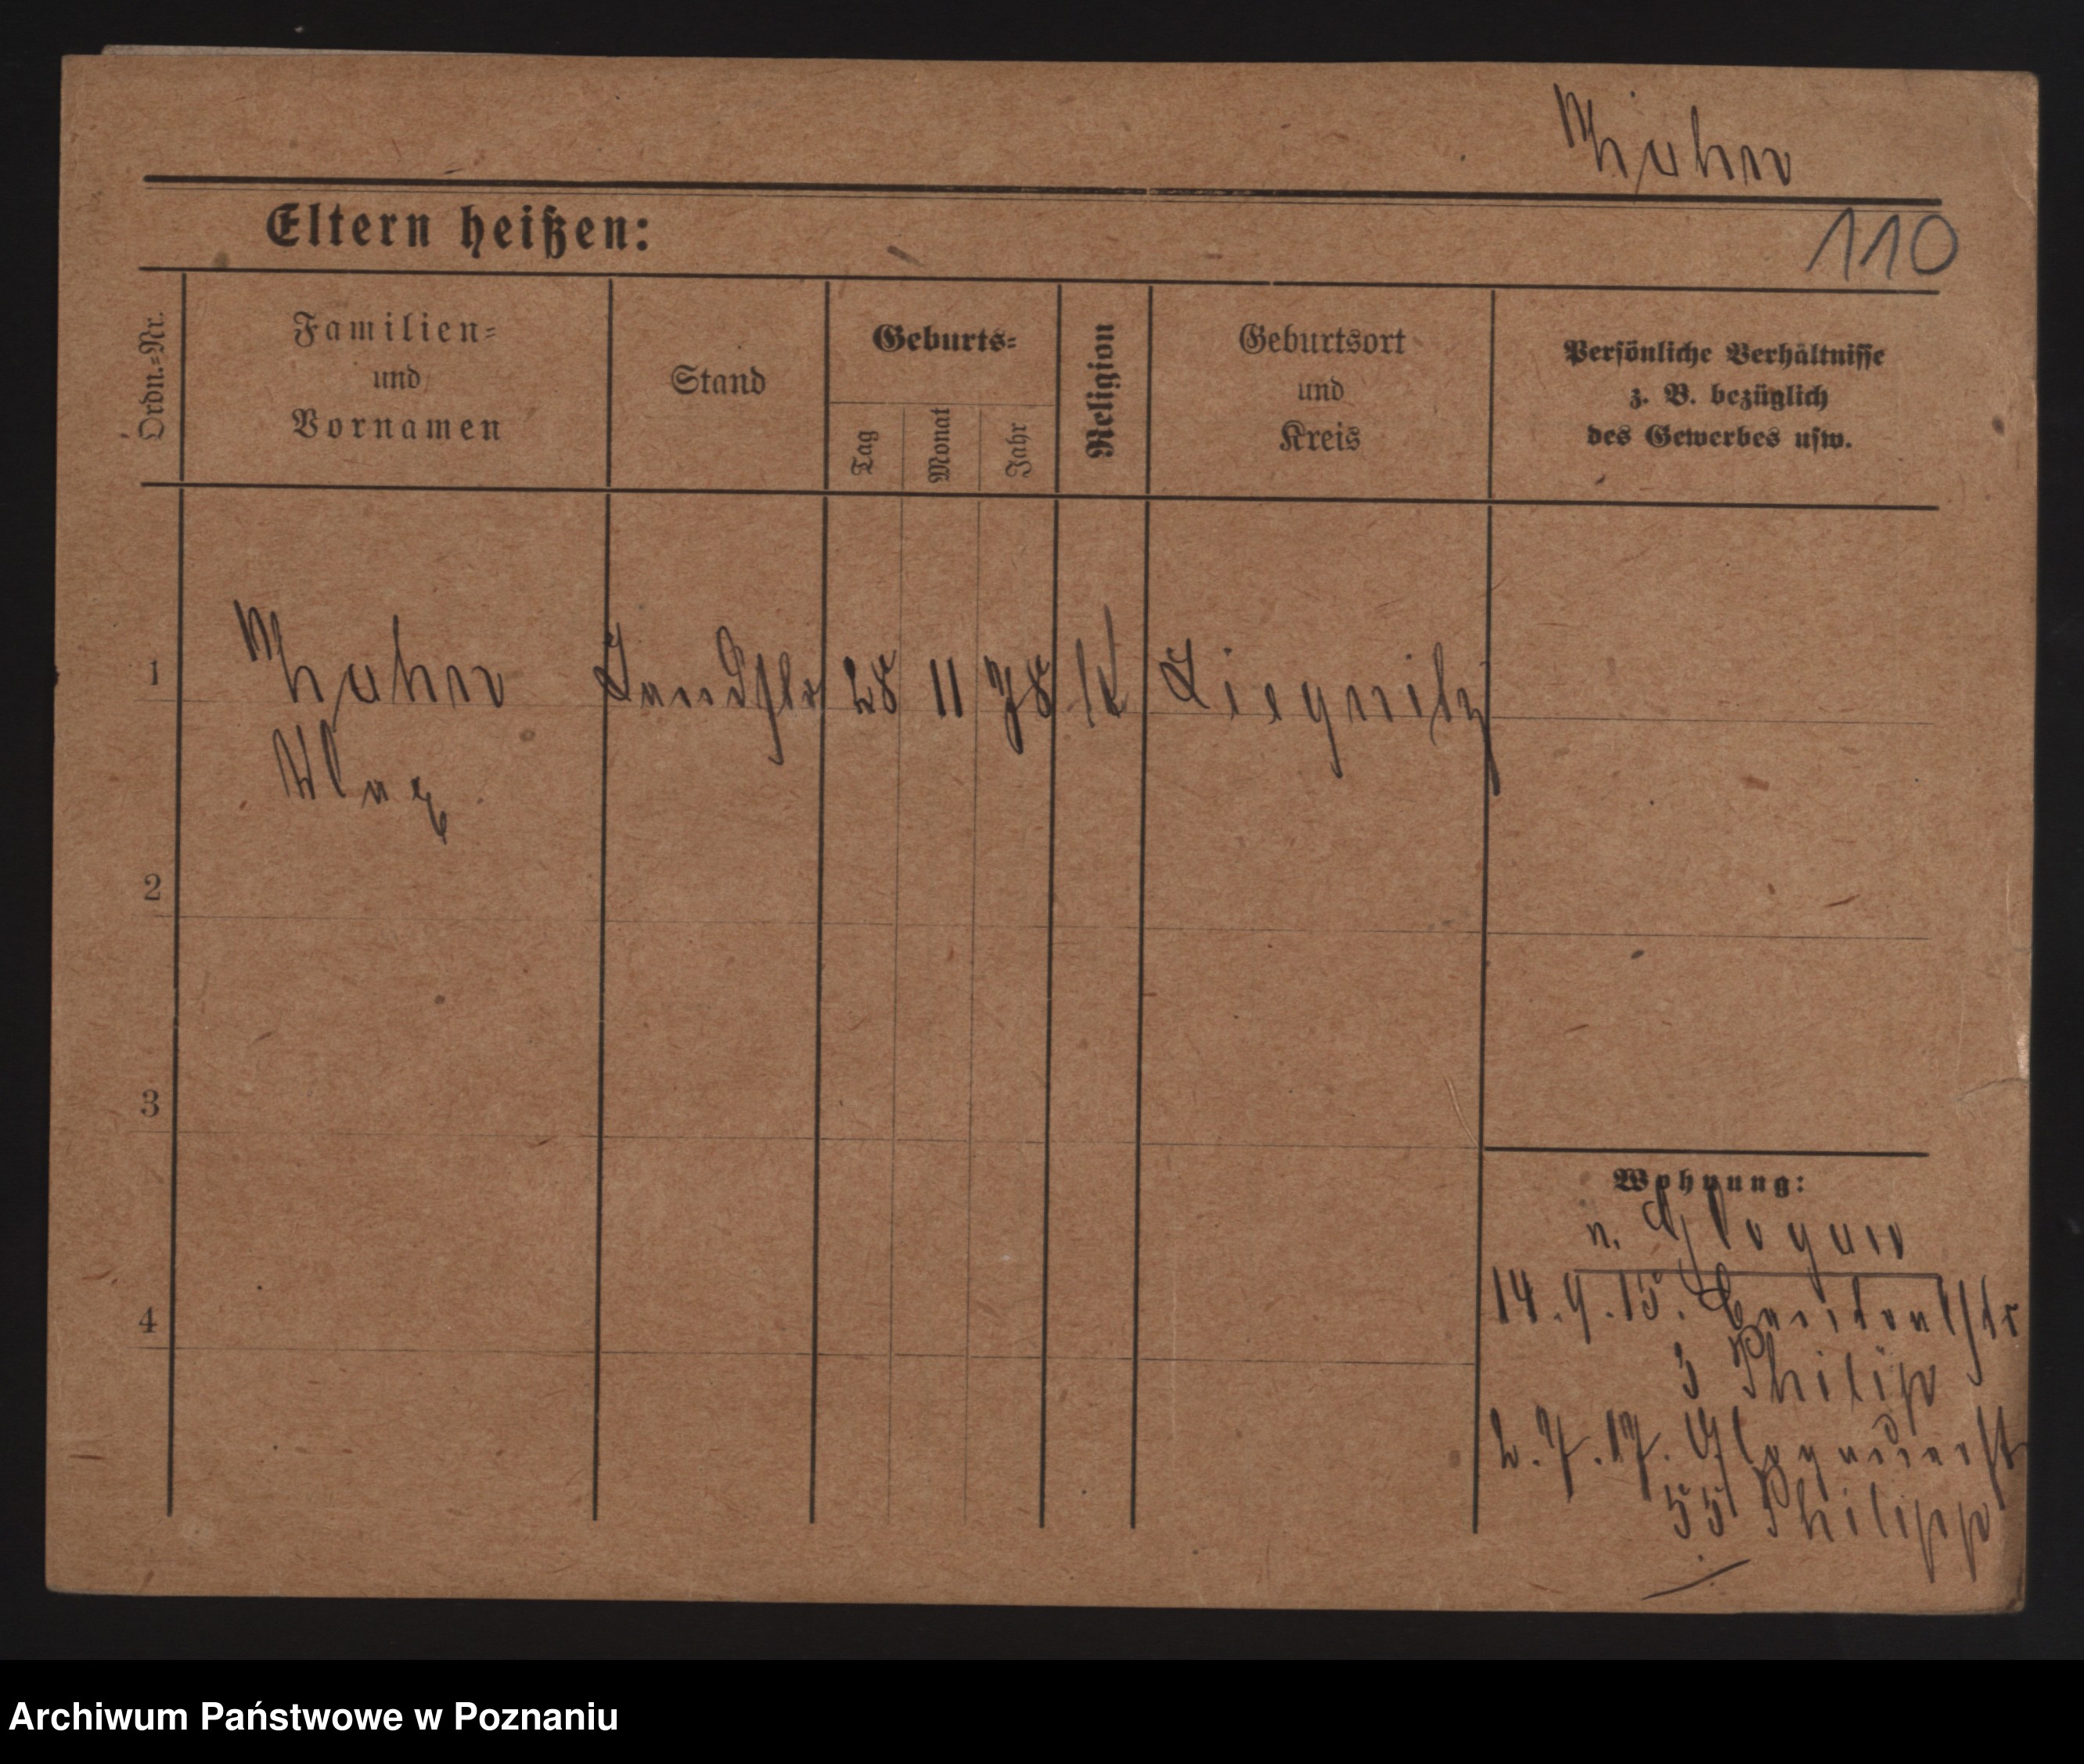 110
Eltern heißen:
Ordn.=Nr.
Familien=
und
Vornamen
Stand
Geburts=
Tag
Monat
Jahr
Religion
Geburtsort
und
Kreis
Persönliche Verhältnisse
z. B. bezüglich
des Gewerbes usw.
1
28 11 78 K Liegnitz
Max
2
3
4
Wohnung:
n. Glogau
14.9.15.
3 Philipp
2.7.17.
55 Philipp
Archiwum Państwowe w Poznaniu